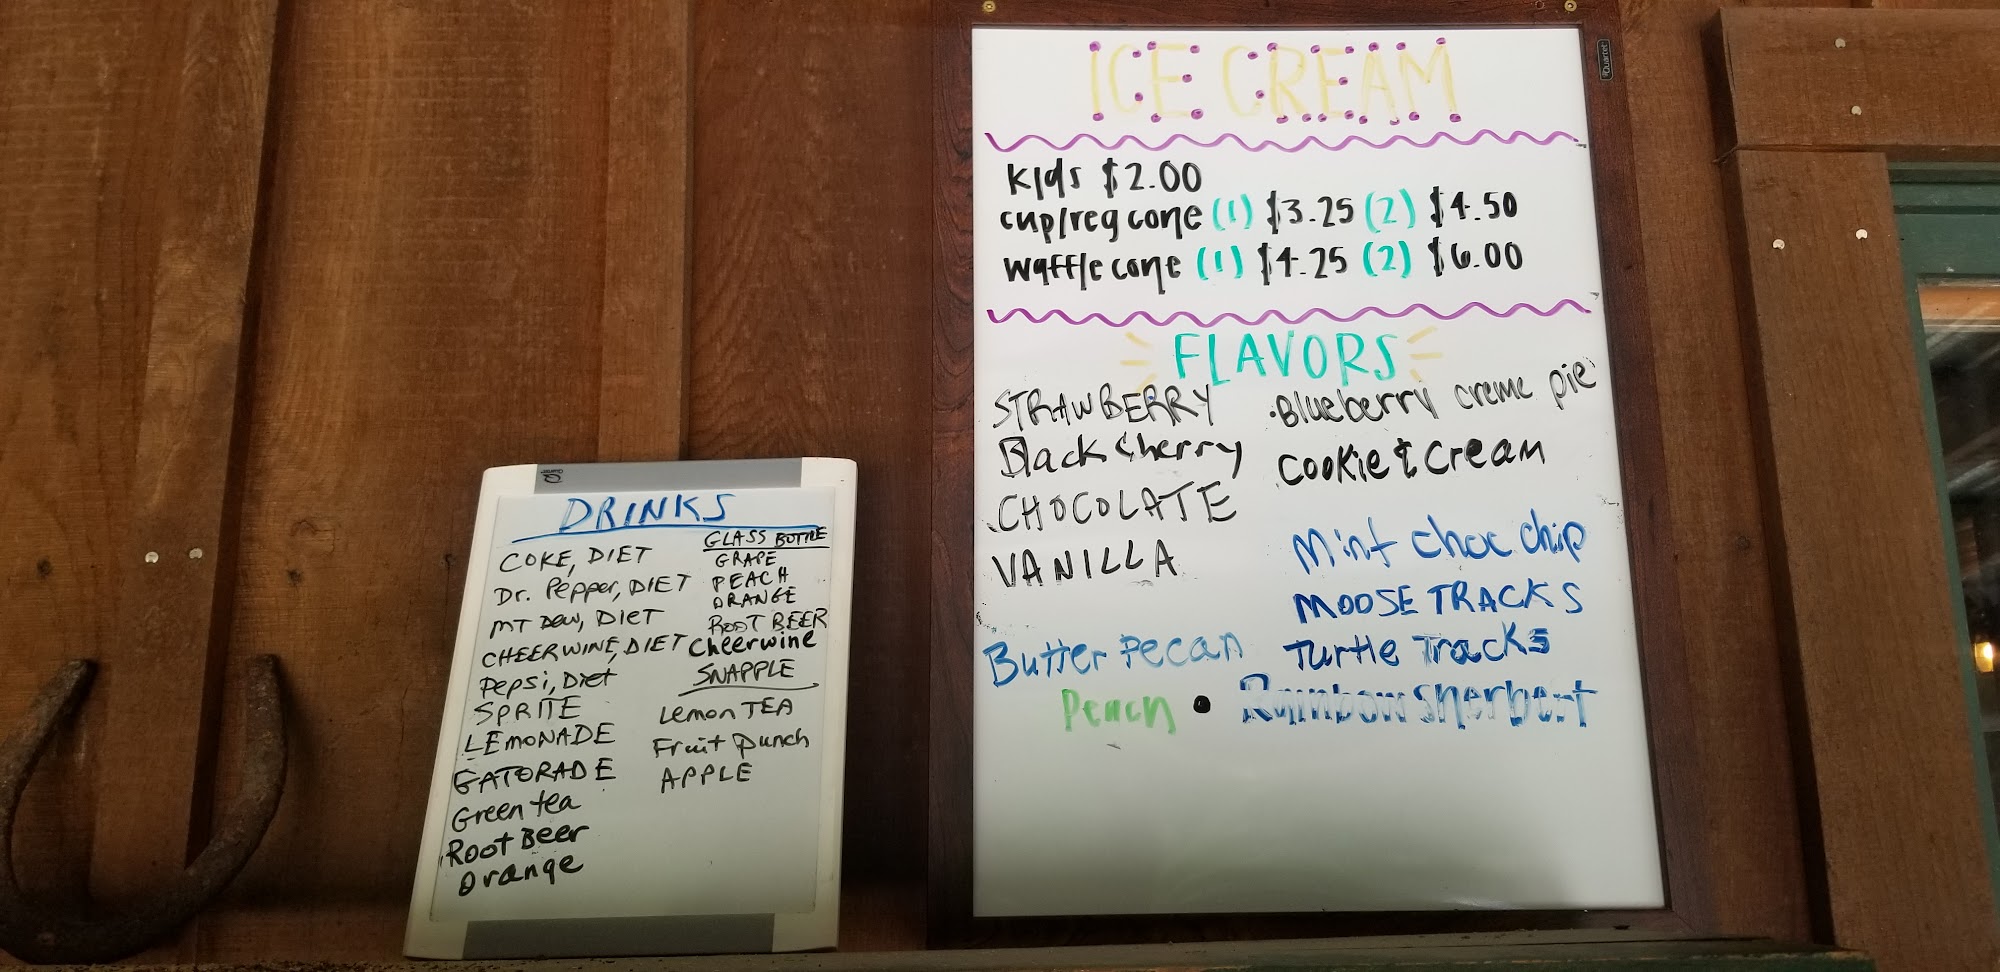 ICE CREAM
Kids $2.00
cup/reg cone (1) $3.25 (2) $4.50
waffle cone (1) $4.25 (2) $6.00
FLAVORS
STRAWBERRY
Black Cherry
CHOCOLATE
VANILLA
Butter Pecan
Peach •
·Blueberry creme pie
Cookie & Cream
Mint choc chip
MOOSE TRACKS
Turtle Tracks
Rainbow Sherbert
Quartet
Quartet
DRINKS
COKE, DIET
Dr. Pepper, DIET
MT Dew, DIET
CHEERWINE, DIET
Pepsi, Diet
SPRITE
LEMONADE
GATORADE
Green tea
Root Beer
Orange
GLASS BOTTLE
GRAPE
PEACH
ORANGE
ROOT BEER
Cheerwine
SNAPPLE
Lemon TEA
Fruit Punch
APPLE